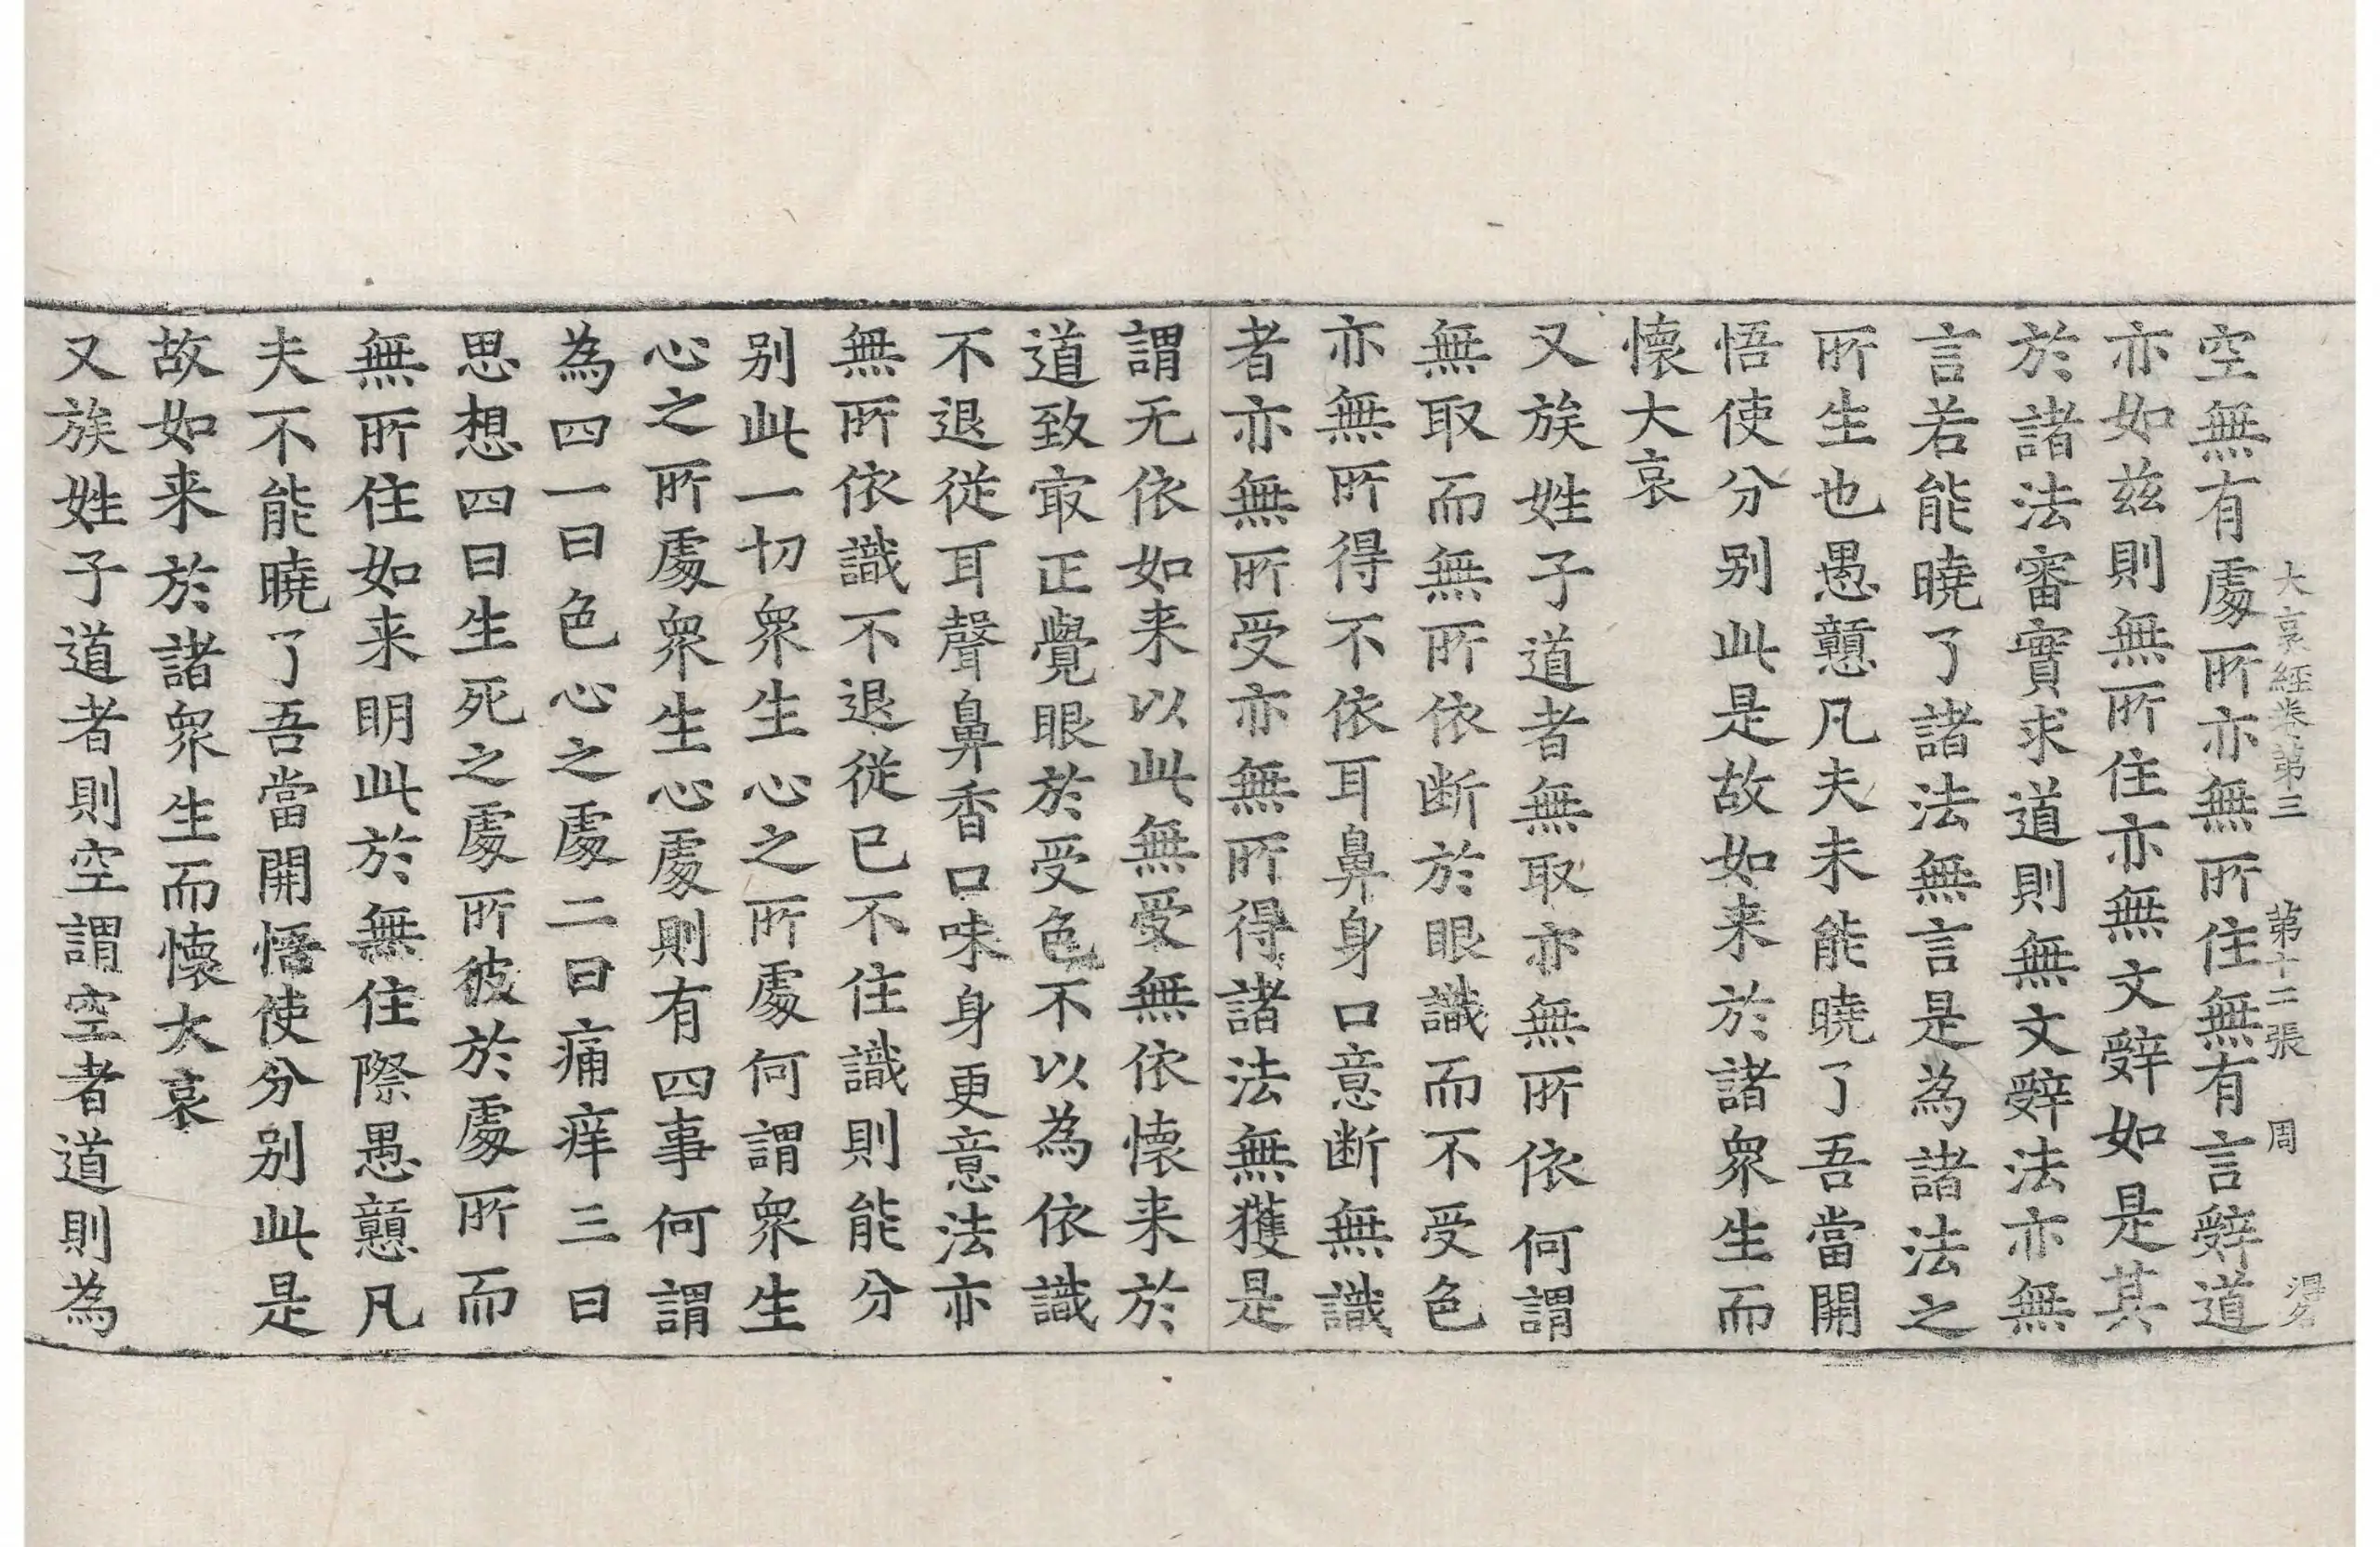 大哀経卷第三　第十二張　周
空無有處所亦無所住無有言辝道
亦如兹則無所住亦無文辝如是其
於諸法審實求道則無文辝法亦無
言若能曉了諸法無言是為諸法之
所生也愚戇凡夫未能曉了吾當開
悟使分别此是故如来於諸衆生而
懷大哀
又族姓子道者無取亦無所依何謂
無取而無所依断於眼識而不受色
亦無所得不依耳鼻身口意断無識
者亦無所受亦無所得諸法無獲是
謂无依如来以此無受無依懷来於
道致㝡正覺眼於受色不以為依識
不退從耳聲鼻香口味身更意法亦
無所依識不退從已不住識則能分
别此一切衆生心之所處何謂衆生
心之所處衆生心處則有四事何謂
為四一曰色心之處二曰痛痒三曰
思想四曰生死之處所彼於處所而
無所住如来明此於無住際愚戇凡
夫不能曉了吾當開悟使分别此是
故如来於諸衆生而懷大哀
又族姓子道者則空謂空者道則為